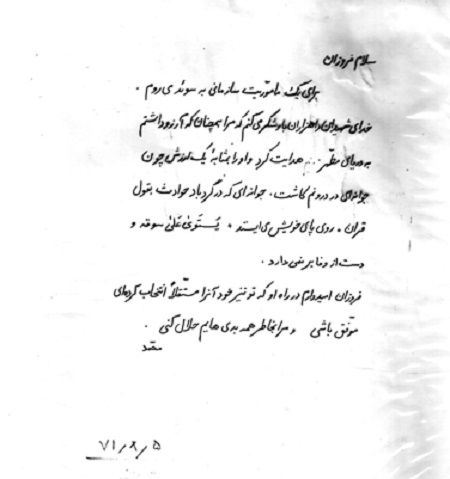 سلام فروزان
برای یک مأموریت سازمانی به سوئد می روم .
خدای شهیدان را هزاران بار شکر می کنم که مرا همچنان که آرزو داشتم
به دریای هدایت کرد و او را بمثابهٔ یک چون
جوانه ای در درونم کاشت . جوانه ای که در گردباد حوادث بقول
قرآن ، روی پای خویش می ایستد ، یَستَوی عَلیٰ سوقه و
دست از وفا بر نمی دارد .
فروزان امیدوارم در راه او که تو نیز خود آنرا مستقلاً انتخاب کرده ای
موفق باشی و مرا بخاطر همه بدی هایم حلال کنی .
۷۱٫۸٫۵